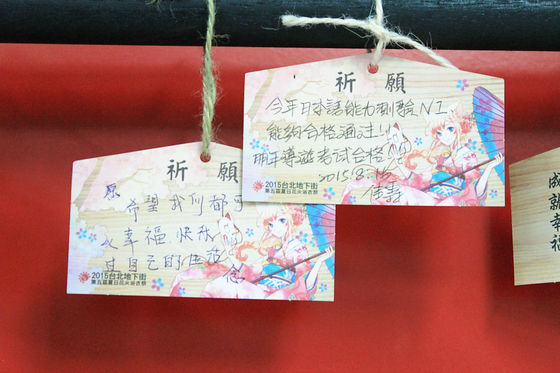 祈願
今年日本語能力測驗N1
能夠合格通過!!
明年導遊考試合格
2015.8.
2015台北地下街
第五屆夏日花火浴衣祭
祈願
願
希望我們都可
以幸福快樂
過自己的生活
念
2015台北地下街
第五屆夏日花火浴衣祭
成就幸福